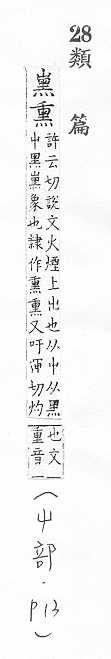 28
類篇
𤋱熏
許云切説文火煙上出也从屮从黑
屮黑熏象也隸作熏熏又吁運切灼
也文一
重音一
(屮部.P13)